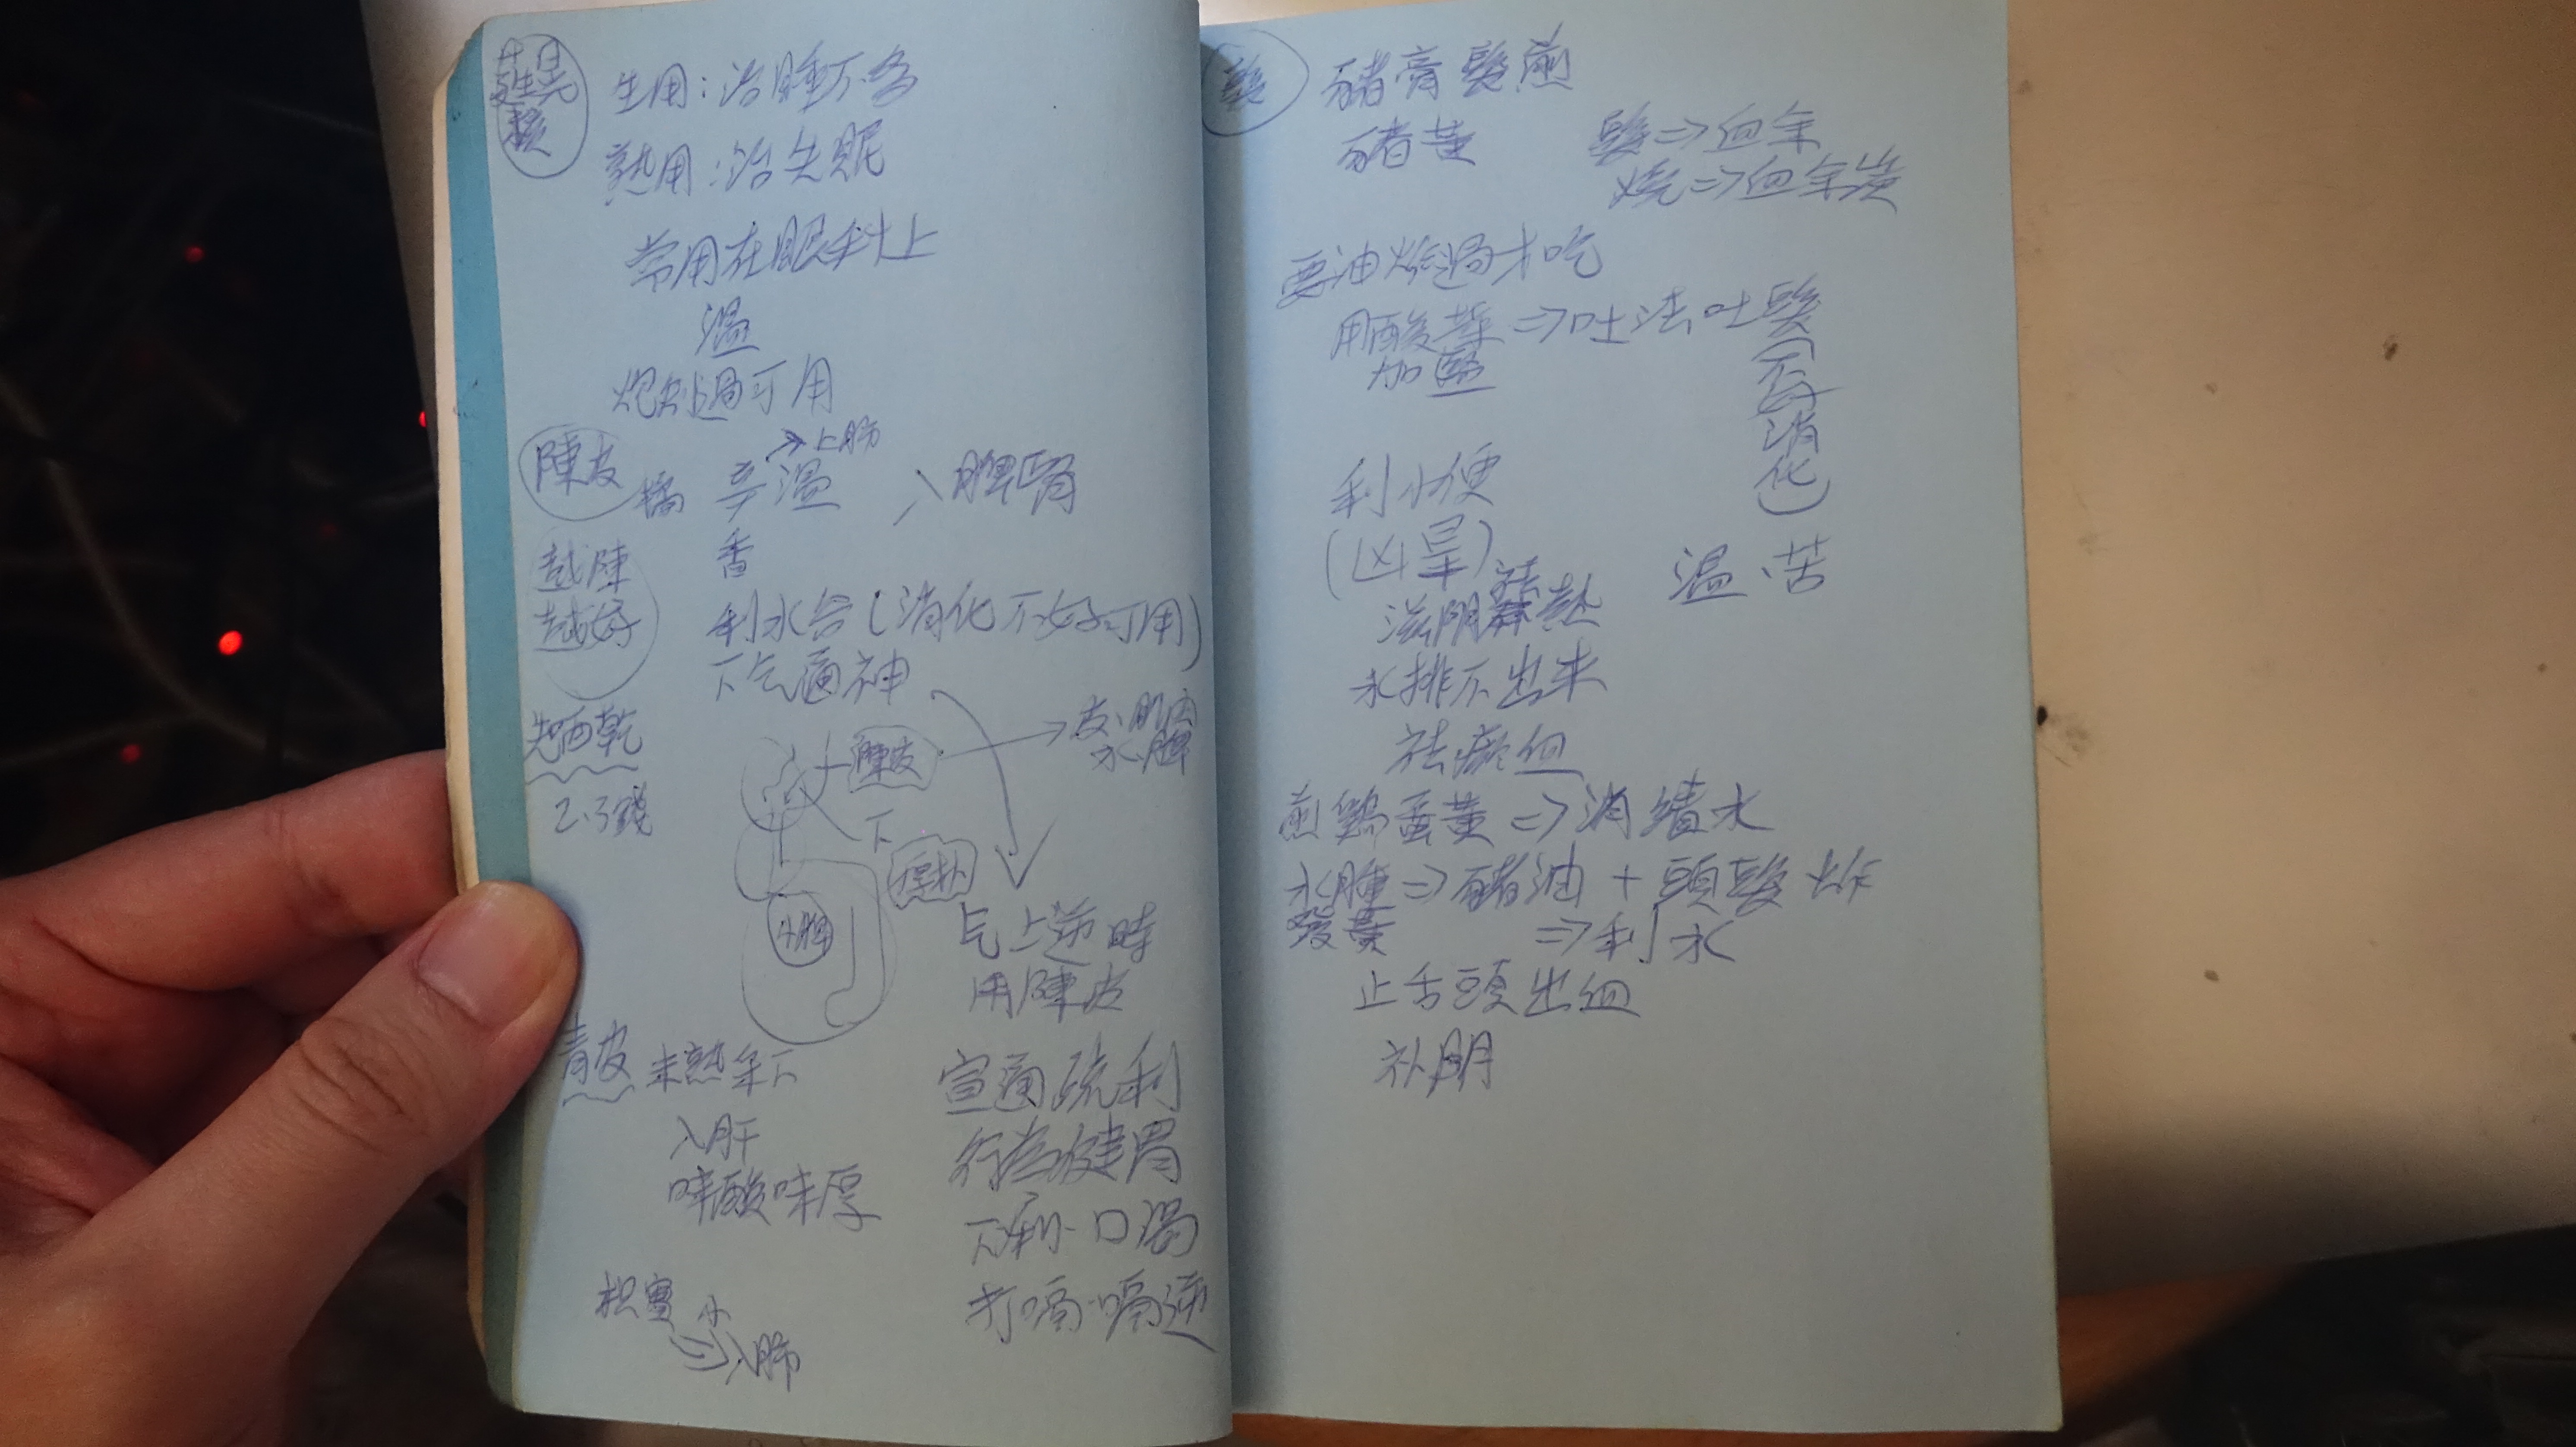 生用：治睡不多
熟用：治失眠
常用在眼科上
溫
炮制過可用
陳皮
橘
辛溫
→上肺
入脾胃
香
越陳
越好
利水谷(消化不好可用)
下气通神
先晒乾
2.3錢
陳皮
→皮、肌肉
水腫
下
厚朴
气上逆時
用陳皮
青皮
未熟采下
入肝
味酸味厚
宣通疏利
行气健胃
下利、口渴
打嗝、嗝逆
枳實
小
⇒入肺
髮
豬膏髮煎
豬黃
髮⇒血余
燒⇒血余炭
要油炸過才吃
用酸菜⇒吐法吐髮(不会消化)
加鹽
利小便
溫、苦
滋陰
熱
水排不出來
祛瘀血
煎鷄蛋黃⇒消積水
水腫⇒豬油+頭髮炸
發黃
⇒利水
止舌頭出血
补陰